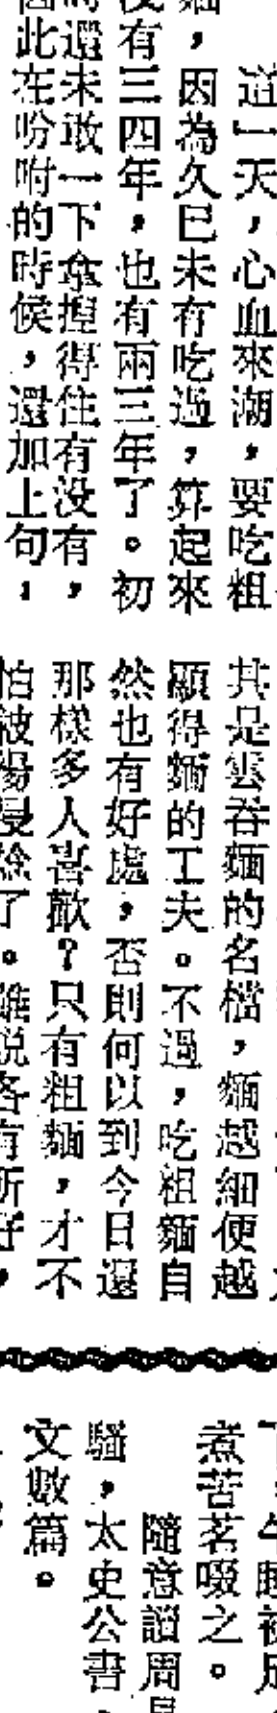 道一天，心血來潮，要吃粗
，因為久已未有吃過，算起來
有三四年，也有兩三年了。初
還未敢一下拿揑得住有没有，
此在吩咐的時候，還加上句：
其是雲吞麵的名檔，麵越細便越
顯得麵的工夫。不過，吃粗麵自
然也有好處，否則何以到今日還
那樣多人喜歡？只有粗麵，才不
怕被湯浸
了。雖説各有所好，
煮苦茗啜之。
隨意讀周
騷，太史公書，
文數篇。